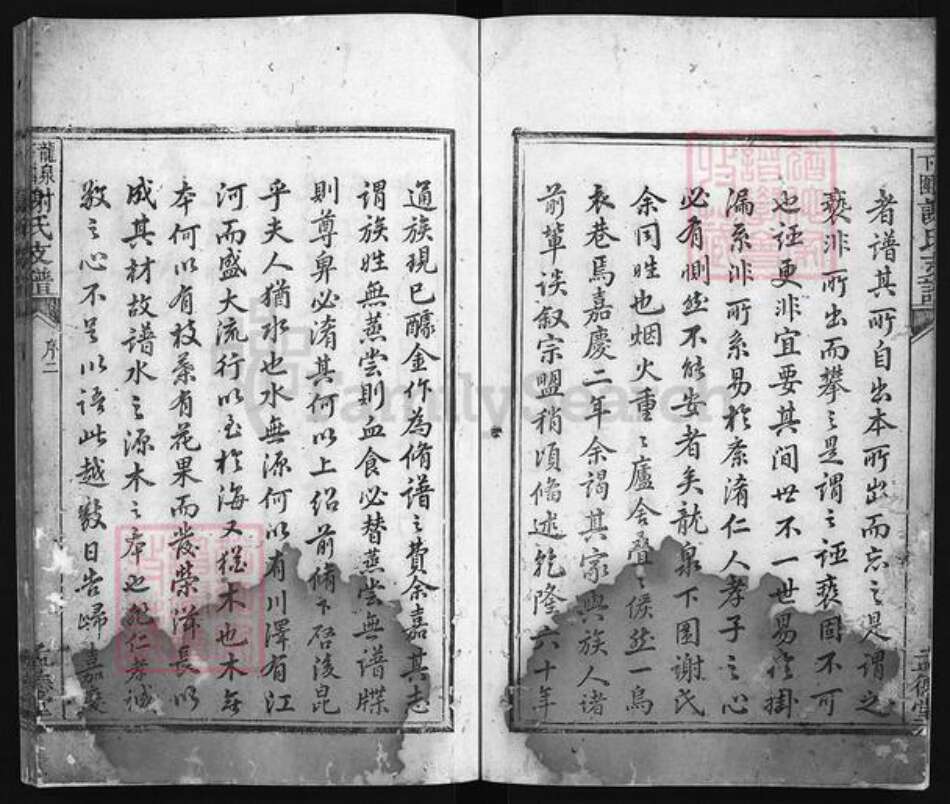 者譜其所自出本所出而忘之是謂之
褻非所出而攀之是謂之誣褻固不可
也誣更非宜要其間世不一世易淪掛
漏系非所系易於紊淆仁人孝子之心
必有惻然不能安者矣龍泉下圍謝氏
余同姓也烟火重〻廬舍疊〻儼然一烏
衣巷焉嘉慶二年余謁其家與族人諸
前輩談叙宗盟稍頃條述乾隆六十年
通族現已醵金作為脩譜之費余嘉其志
謂族姓無蒸嘗則血食必替蒸嘗無譜牒
則尊鼻必淆其何以上紹前脩下啓後昆
乎夫人猶水也水無源何以有川澤有江
河而盛大流行以至於海又猶木也木無
本何以有枝葉有花果而發榮滋長以
成其材故譜水之源木之本也非仁孝誠
敬之心不足以語此越數日告歸嘉慶
龍泉
謝氏支譜
序二
FamilySearch